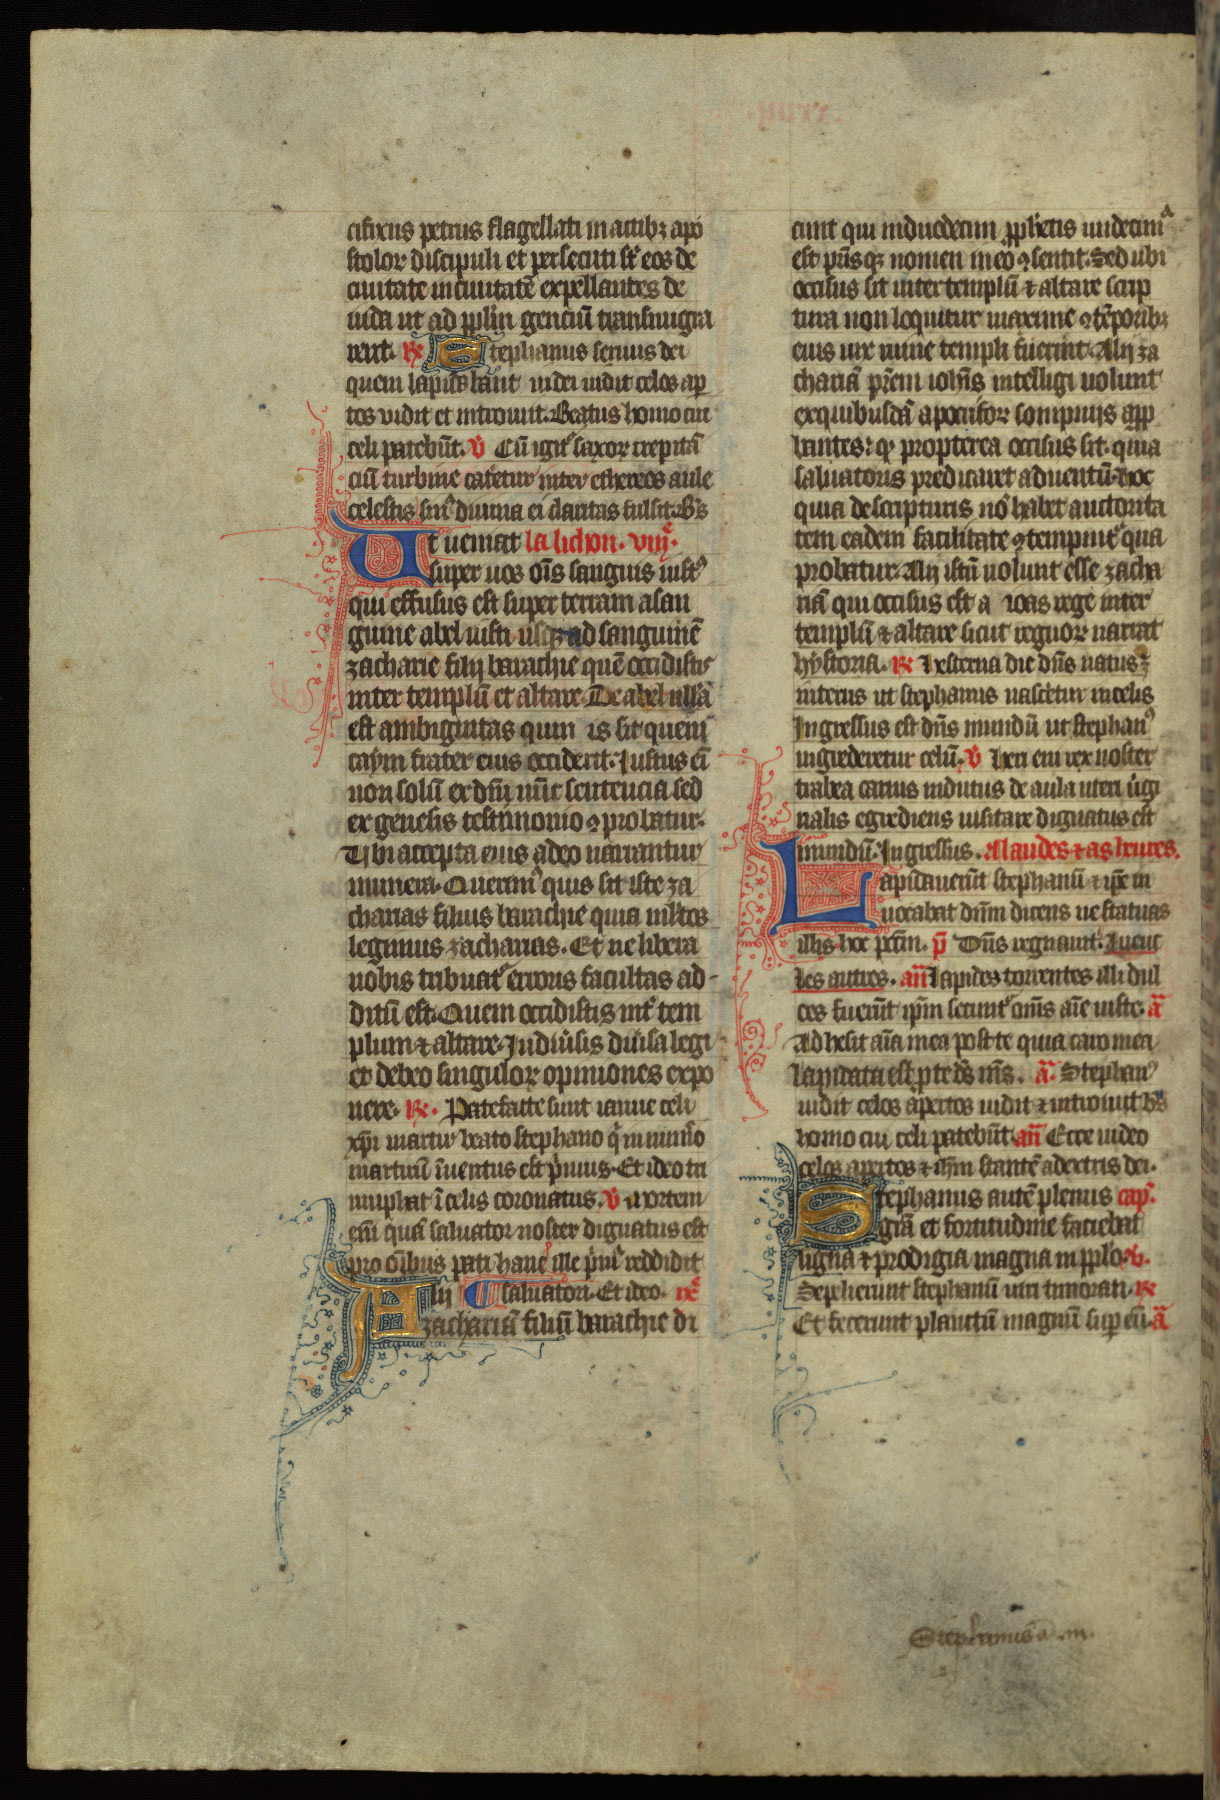 cifixus petrus flagellati in actib₃ apo
stolor discipuli et persecuti st̄ eos de
ciuitate in ciuitatē expellantes de
iuda ut ad ꝓplm̄ genciū transmigra
rent. R̄ Stephanus seruus dei
quem lapidabāt iudei uidit celos ap̱
tos uidit et introiuit. Beatus homo cui
celi patebūt. v̄ Cū igit᷑ saxor crepitā
ciū turbine cat̓etur inter ethereos aule
celestis sin᷑ diuina ei claritas fulsit. B̄s
Ut ueniat la lichon. viij.ͤ
super uos oīs sanguis iustꝰ
qui effusus est super terram a san
guine abel iusti usq₃ ad sanguinē
zacharie filij barachie quē occidistis
inter templū et altare. De abel nulla
est ambiguitas quin is sit quem
caym frater eius occiderit. Justus eī
non solū ex dn̄i nūc sentencia sed
ex genesis testimonio ꝯprobatur.
Ubi accepta eius a deo narrantur
munera. Querimꝰ quis sit iste za
charias filius barachie quia ml̓tos
legimus zacharias. Et ne libera
nobis tribuat᷑ erroris facultas ad-
ditū est. Quem occidistis int̓ tem
plum ⁊ altare. In diu̓sis diu̓sa legi
et debeo singulor opiniones expo
nere. R̄. Patefacte sunt ianue celi
xp̄i martir beato stephano q̓ in num̓o
martirū īuentus est p̓mus. Et ideo tri
umphat ī celis coronatus. v̄ Mortem
eni̅ quā saluator noster dignatus est
pro oībus pati hanc ille p̓mꝰ reddidit
Alij saluatori. Et ideo. ixͤ
zachariā filiū barachie di
cunt qui in duodecim ꝓphetis undecimꝰ
est pr̄isq₃ nomen in eo ꝯsentit. Sed ubi
occisus sit inter templū ⁊ altare scrip
tura non loquitur maxime ꝯ tēporib₃
eius uix ruine templi fuerint. Alij za
chariā pr̄em ioh̄is intelligi uolunt
ex quibusdā apocrifor sompnijs app̱
bantes: qꝫ propterea occisus sit. quia
saluatoris predicaret aduentū. Hoc
quia de scripturis nō habet auctorita
tem eadem facilitate ꝯtempnit᷑ qua
probatur. Alij istū uolunt esse zacha
riā qui occisus est a ioas rege inter
templū ⁊ altare sicut regnor narrat
hystoria. R̄ Hesterna die dn̄s natus ē
in terris ut stephanus nascetur in celis
Ingressus est dn̄s mundū ut stephanꝰ
ingrederetur celū. v̄ Heri eni rex noster
trabea carnis indutus de aula uteri u̓gi
nalis egrediens uisitare dignatus est
mundū. Ingressus. A laudes ⁊ as heures.
Lapidauerūt stephanū ⁊ ip̄e in
uocabat dn̄m dicens ne statuas
illis hoc pc̄cm. p̄ Dn̄s regnauit. Auecꝰ
les autres. an̄ Lapides torrentes illi dul
ces fuerūt ip̄m secunt᷑ om̄s aīe iuste. ā
Adhesit aīa mea post te quia caro mea
lapidata est p te ds̄ ms̄. ā. Stephanꝰ
uidit celos apertos uidit ⁊ introiuit bs̄
homo cui celi patebūt. an̄ Ecce uideo
celos apertos ⁊ ih̄m stantē a dextris dei.
Stephanus autē plenus cap̓.
grā et fortitudine faciebat
signa ⁊ prodigia magna in pp̄lo. v.
Sepelierunt stephanū uiri timorati. R̄
Et fecerunt planctū magnū sup̱ eū. ā
Stephanus ā .m.